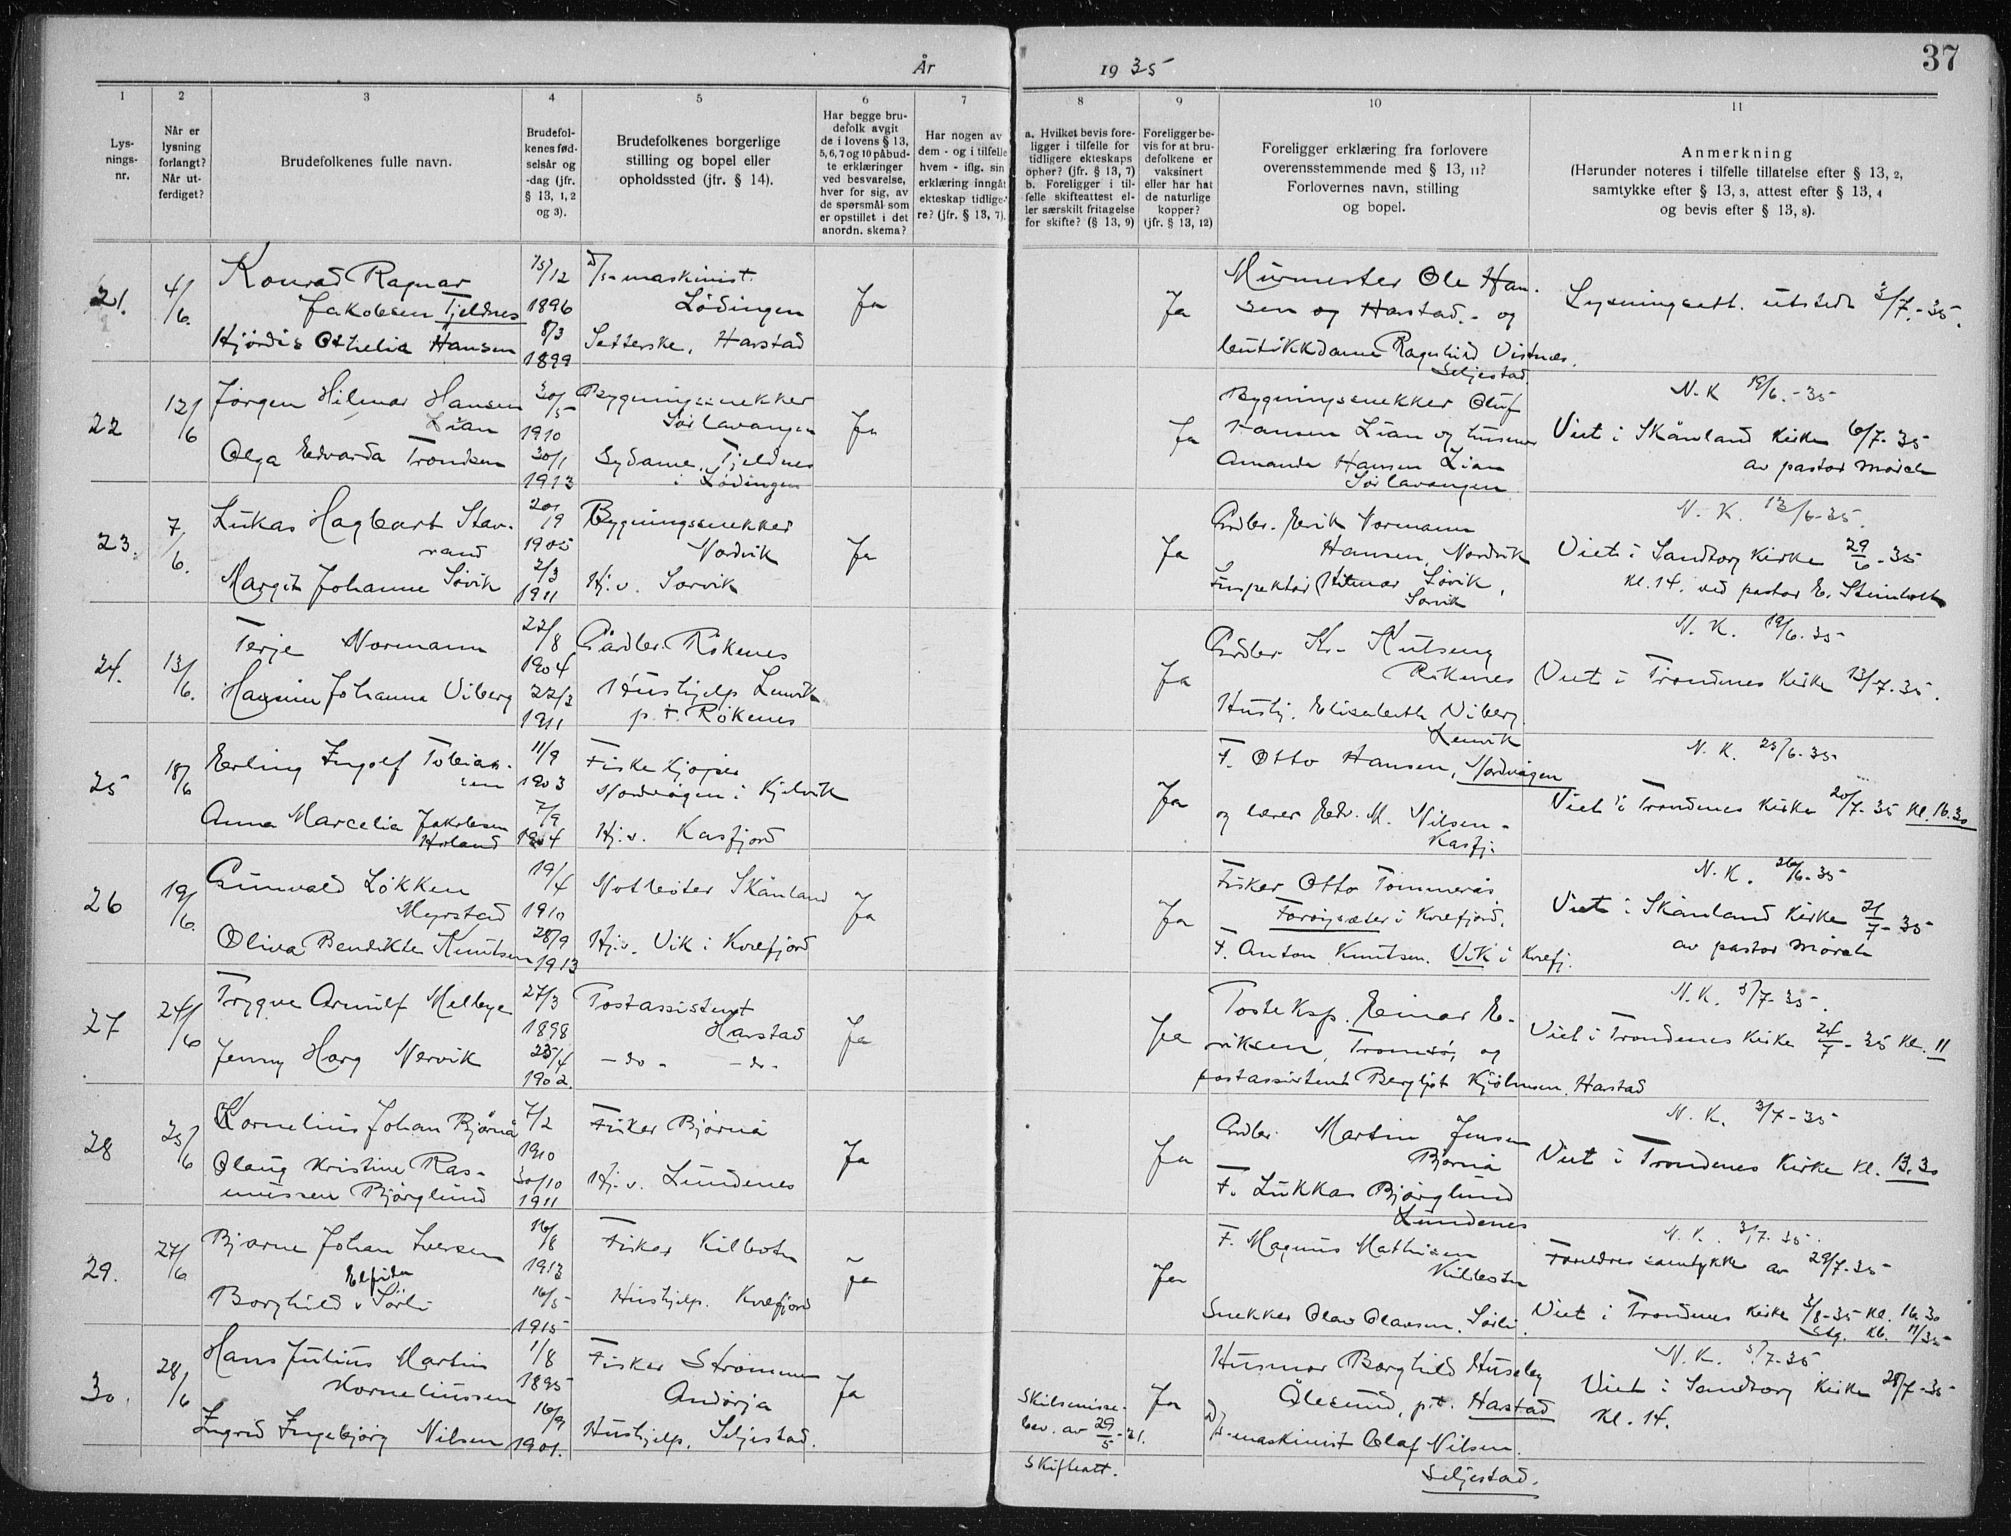 37
År 1935
1 2 3 4 5 6 7 8 9 10 11
Lys-
nings-
nr.
Når er
lysning
forlangt?
Når ut-
ferdiget?
Brudefolkenes fulle navn.
Brudefol-
kenes fød-
selsår og
-dag (jfr.
§ 13, 1, 2
og 3).
Brudefolkenes borgerlige
stilling og bopel eller
opholdssted (jfr. § 14).
Har begge bru-
defolk avgit
de i lovens § 13,
5, 6, 7 og 10 påbud-
te erklæringer
ved besvarelse,
hver for sig, av
de spørsmål som
er opstillet i det
anordn. skema?
Har nogen av
dem - og i tilfelle
hvem - iflg. sin
erklæring inngått
ekteskap tidlige-
re? (jfr. § 13, 7).
a. Hvilket bevis fore-
ligger i tilfelle for
tidligere ekteskaps
ophør? (jfr. § 13, 7)
b. Foreligger i til-
felle skifteattest el-
ler særskilt fritagelse
for skifte? (§ 13, 9)
Foreligger be-
vis for at bru-
defolkene er
vaksinert
eller har hat
de naturlige
kopper?
(jfr. § 13, 12)
Foreligger erklæring fra forlovere
overensstemmende med § 13, 11?
Forlovernes navn, stilling
og bopel.
Anmerkning
(Herunder noteres i tilfelle tillatelse efter § 13, 2,
samtykke efter § 13, 3, attest efter § 13, 4
og bevis efter § 13, 8).
21.
4/6.
Konrad Ragnar
Jakobsen Tjeldnes
Hjördis Othelia Hansen
15/12
1896
8/3
1899
D/s-maskinist
Lödingen
Setterske, Harstad
Ja
Ja
Murmester Ole Han-
sen og Harstad.- og
butikkdame Ragnhild Vistnes,
Seljestad.
Lysningsatt. utstedt 3/7.-35.
22
12/6
Jörgen Hilmar Hansen
Lian
Olga Edvarda Trondsen
30/5
1910
30/1
1913
Bygningssnekker
Sörlavangen
Sydame, Tjeldnes
i Lödingen
Ja
Ja
Bygningssnekker Oluf
Hansen Lian og husmor
Amanda Hansen Lian
Sörlavangen
N.K 19/6.-35
Viet i Skånland kirke 6/7-35
av pastor Mörch
23.
7/6.
Lukas Hagbart Stav-
rand
Margit Johanne Sövik
20/9
1905
2/3
1911
Bygningssnekker
Nordvik
Hj.v. Sörvik
Ja
Ja
Grdbr. Erik Normann
Hansen, Nordvik
Inspektör Hilmar Sövik,
Sörvik
N.K. 13/6-35.
Viet i Sandtorg kirke 29/6-35
kl. 14. ved pastor E.
24.
13/6.
Terje Normann
Johanna Viberg
22/8
1904
22/3
1911
Gårdbr. Rökenes
Hushjelp Lenvik
p.t. Rökenes
Ja
Grdbr. Kr.
Rökenes
Hushj. Elisabeth Viberg
Lenvik
N.K. 19/6.35
Viet i Trondenes kirke 13/7-35.
25
18/6
Erling Ingolf Tobias-
sen
Anna Marcelia Jakobsen
Holand
11/9
1903
7/9
1904
Fiskekjöper
Nordvågen i Kjelvik
Hj.v. Kasfjord
Ja
F. Otto Hansen, Nordvågen
og lærer Edv. M. Nilsen-
Kasfj.
N.K. 25/6-35
Viet i Trondenes kirke 20/7-35 kl. 16.30
26
19/6.
Gunvald Lökken
Myrstad
Oliva Bendikte Knutsen
19/4
1910
28/9
1913
Notböter Skånland
Hj.v. Vik i Kvefjord
Ja
Ja
Fisker Otto Tömmerås
i Kvefjord.
F. Anton Knutsen. Vik i Kvefj.
N.K. 26/6-35
Viet i Skånland kirke 21/7-35
av pastor Mörch
27
24/6
Trygve Arnulf Melbye
Jenny Harg Nervik
27/3
1898
25/4
1902
Postassistent
Harstad
-do- -do-
Ja
Ja
Posteksp. Einar E-
riksen, Tromsö, og
postassistent Bergljot Kjölmsen, Harstad
N.K. 3/7-35.
Viet i Trondenes kirke 24/7-35 kl. 11
28
25/6
Kornelius Johan Bjørnå
Olaug Kristine Ras-
mussen Björglund
7/2
1910
30/10
1911
Fisker Bjørnå
Hj.v. Lundenes
Ja
Ja
Grdbr. Martin Jensen
Bjørnå
F. Lukkas Björglund
Lundenes
N.K. 3/7-35
Viet i Trondenes kirke kl. 13.30
29.
27/6
Bjarne Johan Iversen
Elfrida
Borghild Sörli
16/8
1913
16/5
1915
Fisker Kilbotn
Hushjelp. Kvefjord
Ja
Ja
F. Magnus Mathisen
Kilbotn
Snekker Olav Olavsen. Sörli.
N.K. 3/7-35.
Foreldres samtykke av 29/7-35
Viet i Trondenes kirke 3/8-35 kl. 16.30
Stg. Kb. 11/35
30.
28/6
Hans Julius Martin
Korneliussen
Ingrid Ingebjörg Nilsen
1/8
1895
16/9
1901.
Fisker Strömmen
Andörja
Hushjelp, Seljestad.
Ja
Skilsmisse-
bev. av 29/5-21.
Skifteatt.
Ja
Husmor Borghild Huseby
Ålesund, p.t. Harstad
D/s-maskinist Olaf Nilsen
Seljestad.
N.K. 3/7-35
Viet i Sandtorg kirke 28/7-35
kl. 14.